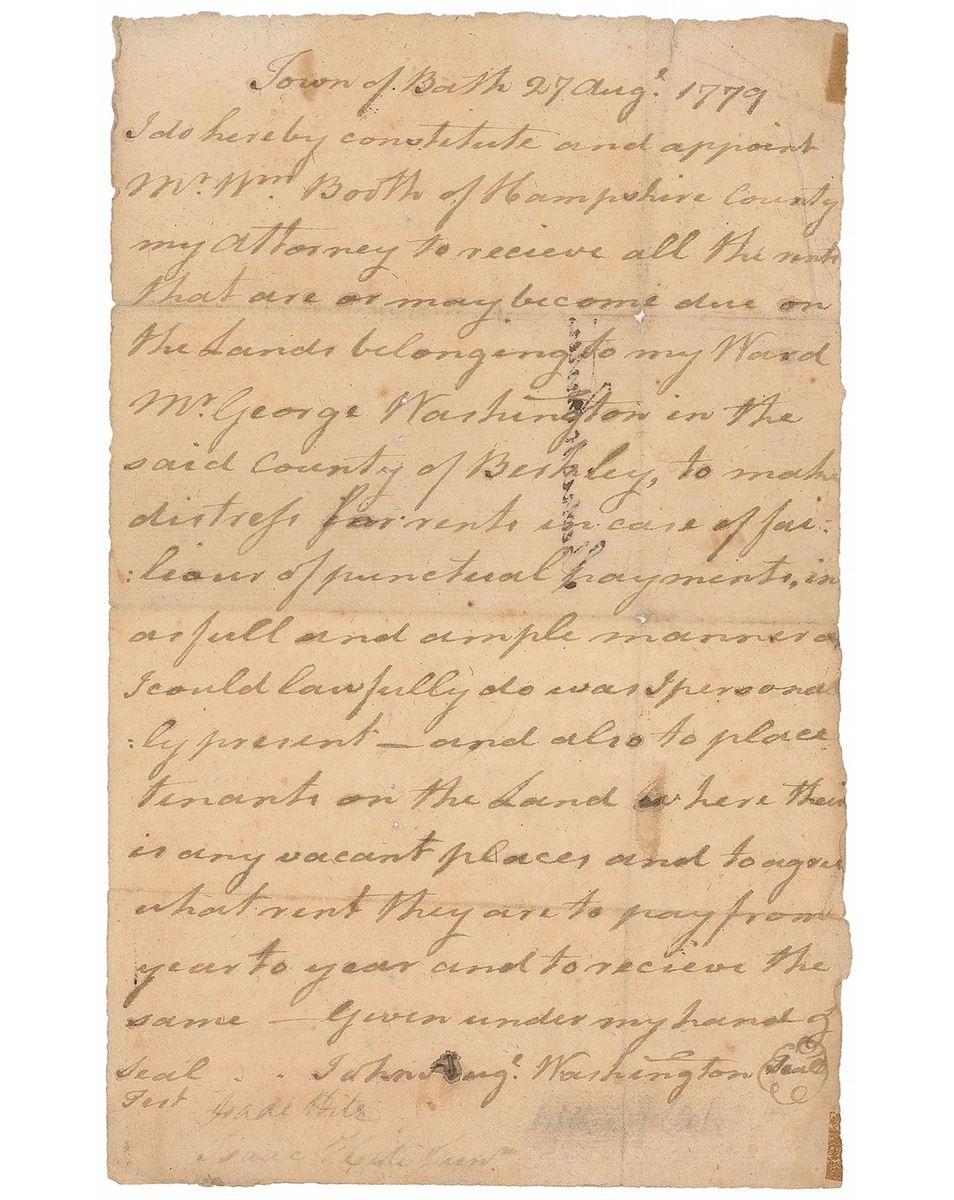 Town of Bath 27 Augt. 1779
I do hereby constitute and appoint
Mr. Wm. Booth of Hampshire County
my Attorney to recieve all the rents
that are or may become due on
the Lands belonging to my Ward
Mr. George Washington in the
said County of Berkley, to make
distress for rents in case of fai:
:liour of punctual payments, in
as full and ample manner as
I could lawfully do was I personal
:ly present — and also to place
tenants on the Land where their
is any vacant places and to agree
what rent they are to pay from
year to year and to recieve the
same — Given under my hand &
Seal . . John Augt. Washington Seal
Test
Isaac Hite Junr.